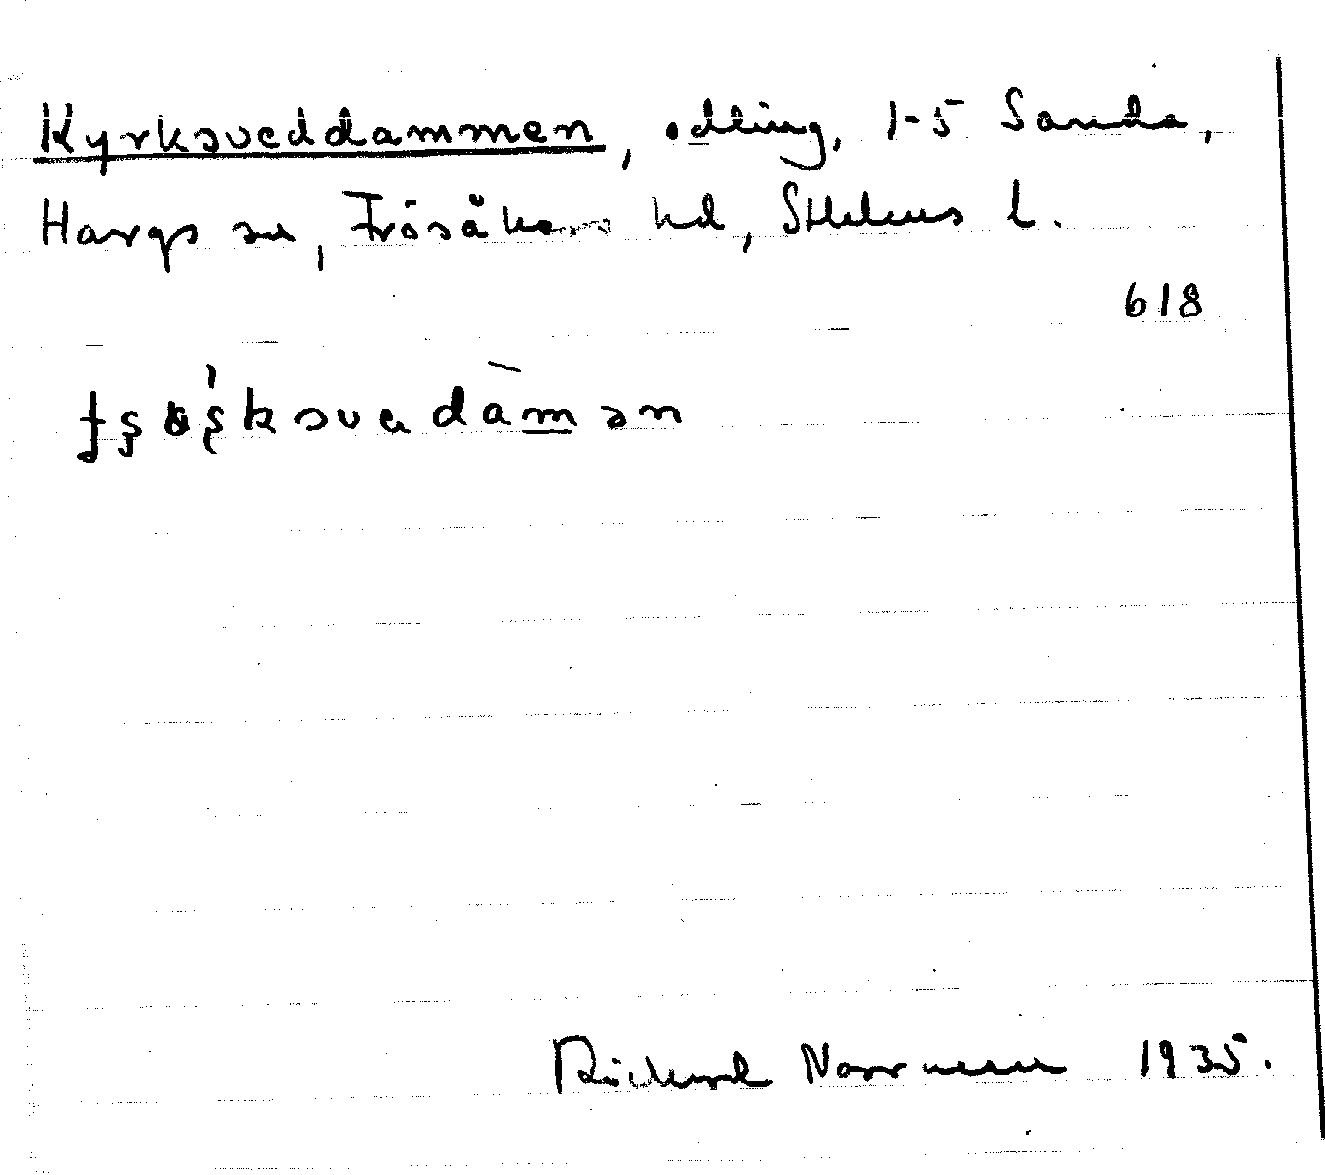 Kyrksveddammen, odling, 1-5 Sanda,
Hargs sn, Frösåkers hd, Sthlms l.
618
Richard Norrman 1935.